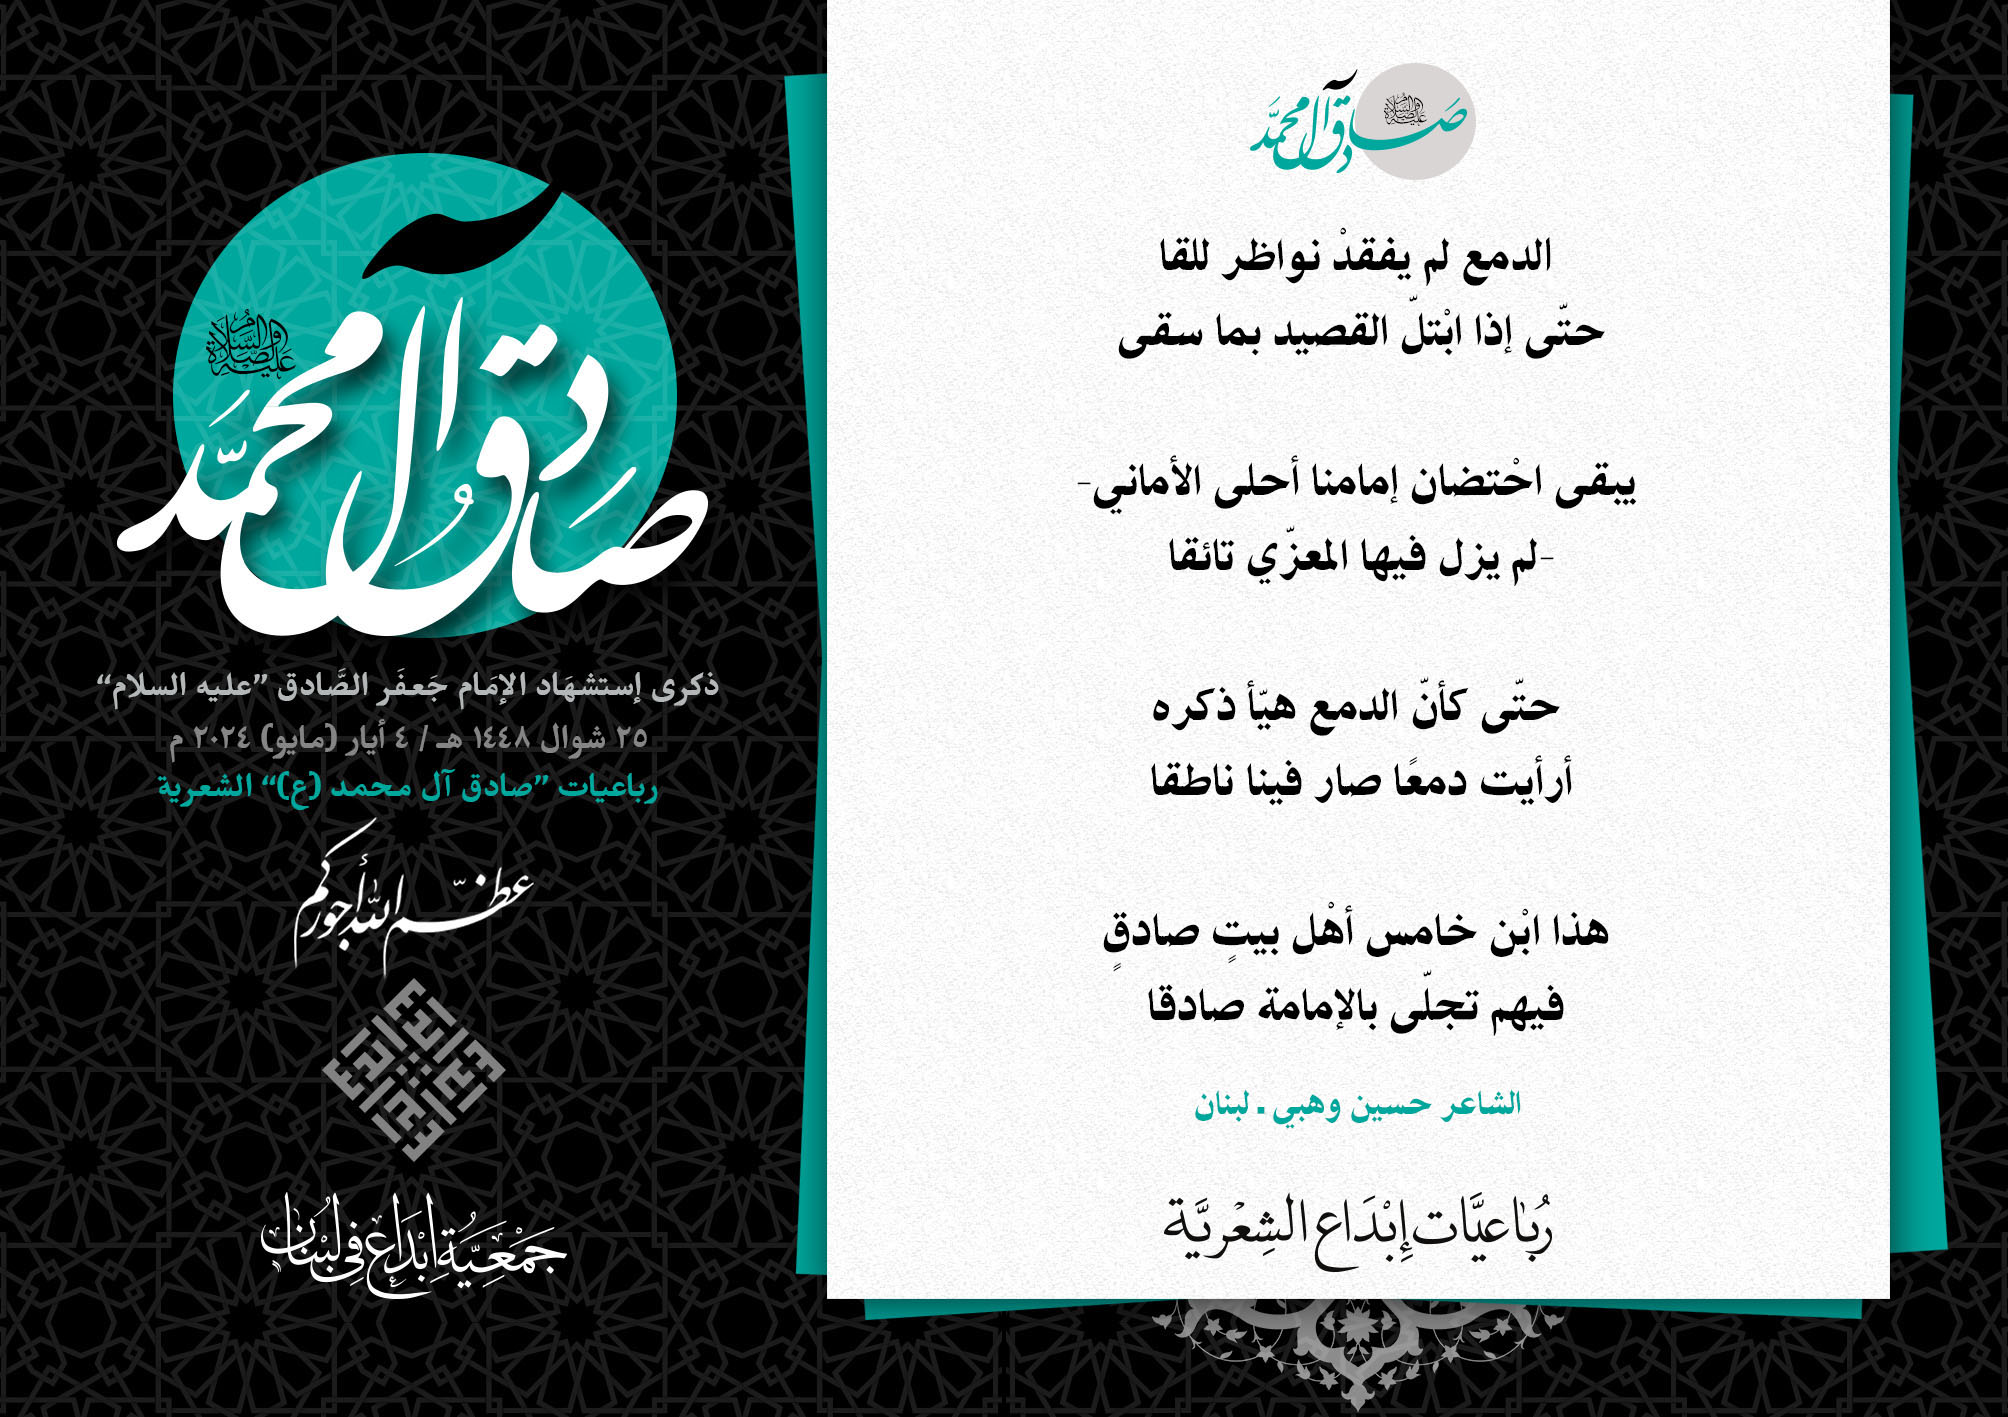 صادق آل محمد
عليه الصلاة والسلام
ذكرى إستشهَاد الإمَام جَعفَر الصَّادق ”عليه السلام“
٢٥ شوال ١٤٤٨ هـ / ٤ أيار (مايو) ٢٠٢٤ م
رباعيات ”صادق آل محمد (ع)“ الشعرية
عظّم الله أجوركم
جَمْعِيَّةُ إِبْدَاع فِي لُبْنَان
صادق آل محمد
عليه الصلاة والسلام
الدمع لم يفقدْ نواظر للقا
حتّى إذا ابْتلّ القصيد بما سقى
يبقى احْتضان إمامنا أحلى الأماني-
-لم يزل فيها المعزّي تائقا
حتّى كأنّ الدمع هيّأ ذكره
أرأيت دمعًا صار فينا ناطقا
هذا ابْن خامس أهْل بيتٍ صادقٍ
فيهم تجلّى بالإمامة صادقا
الشاعر حسين وهبي . لبنان
رُبَاعيَّات إِبْدَاع الشِعْريَّة